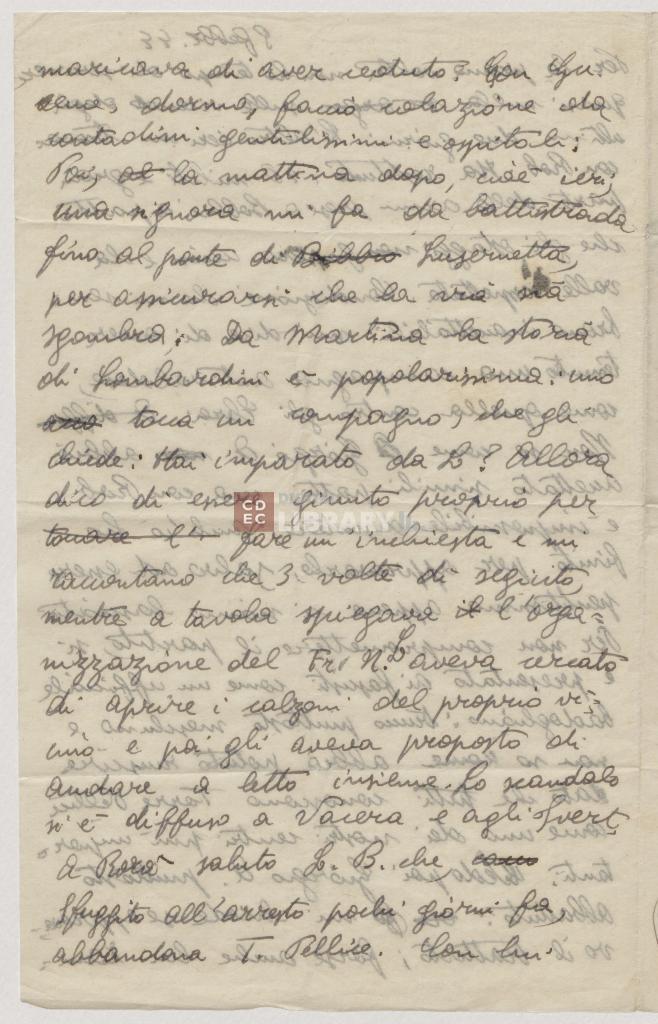 maricava di aver ceduto. Con Gu-
ceno, dormo, faccio colazione da
contadini gentilissimi e ospitali;
Poi, al la mattina dopo, cioè ieri,
una signora mi fa da battistrada
fino al ponte di Bibbio Lusernetta,
per assicurarsi che la via sia
sgombra. Da Martina la storia
di Lombardini è popolarissima: uno
tocca un compagno, che gli
chiede: Hai imparato da L.? Allora
dico di essere giunto proprio per
toccare l' fare un inchiesta e mi
raccontano che 3 volte di seguito,
mentre a tavola spiegava il l'orga=
nizzazione del Fr. N. L aveva cercato
di aprire i calzoni del proprio vi-
cino e poi gli aveva proposto di
andare a letto insieme. Lo scandalo
si è diffuso a Vacera e agli Ivert.
A Rorà saluto L. B. che,
sfuggito all'arresto pochi giorni fa,
abbandona T. Pellice. Con lui
CDEC
LIBRARY
8 febbr. 44